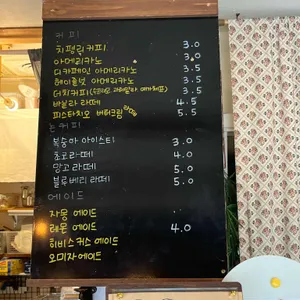 커피
치펠린커피 3.0
아메리카노 3.0
디카페인 아메리카노 3.5
헤이즐넛 아메리카노 3.5
더치커피 3.5
바닐라 라떼 4.5
피스타치오 버터크림라떼 5.5
논커피
복숭아 아이스티 3.0
초코라떼 4.0
망고 라떼 5.0
블루베리 라떼 5.0
에이드
자몽 에이드
레몬 에이드 4.0
히비스커스 에이드
오미자에이드